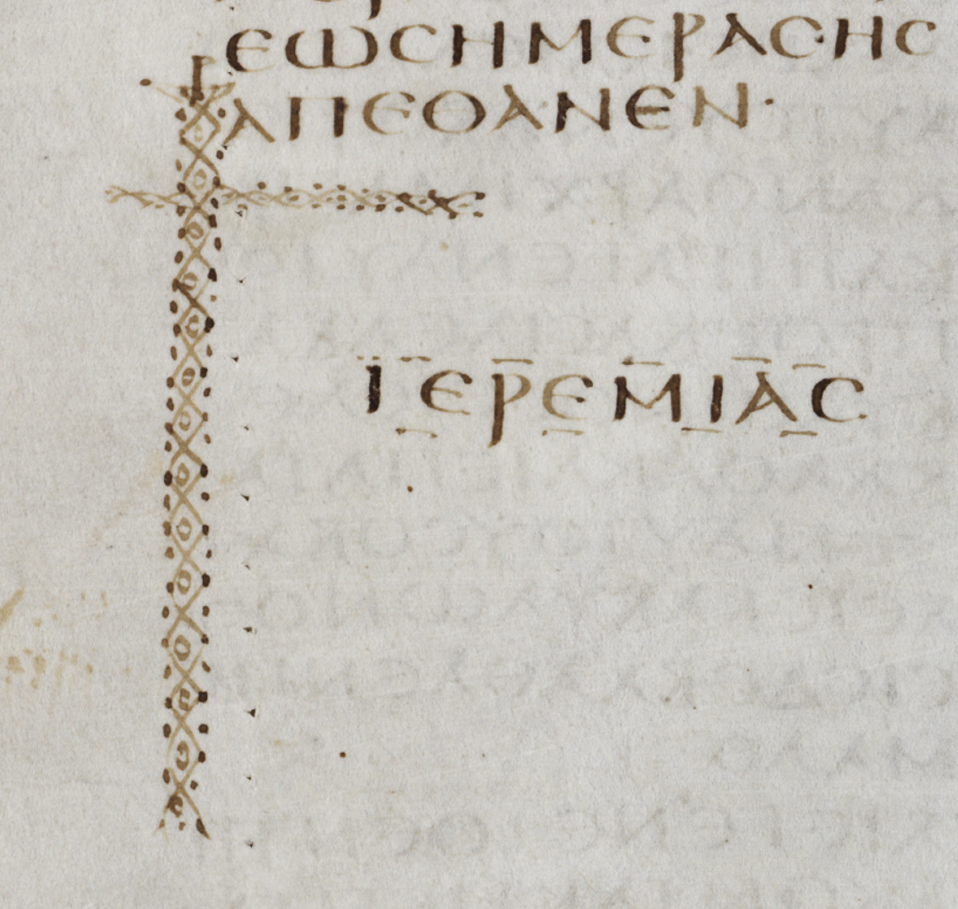 ΕΩCΗΜΕΡΑCΗC
ΑΠΕΘΑΝΕΝ·
ΪΕΡΕΜΙΑC